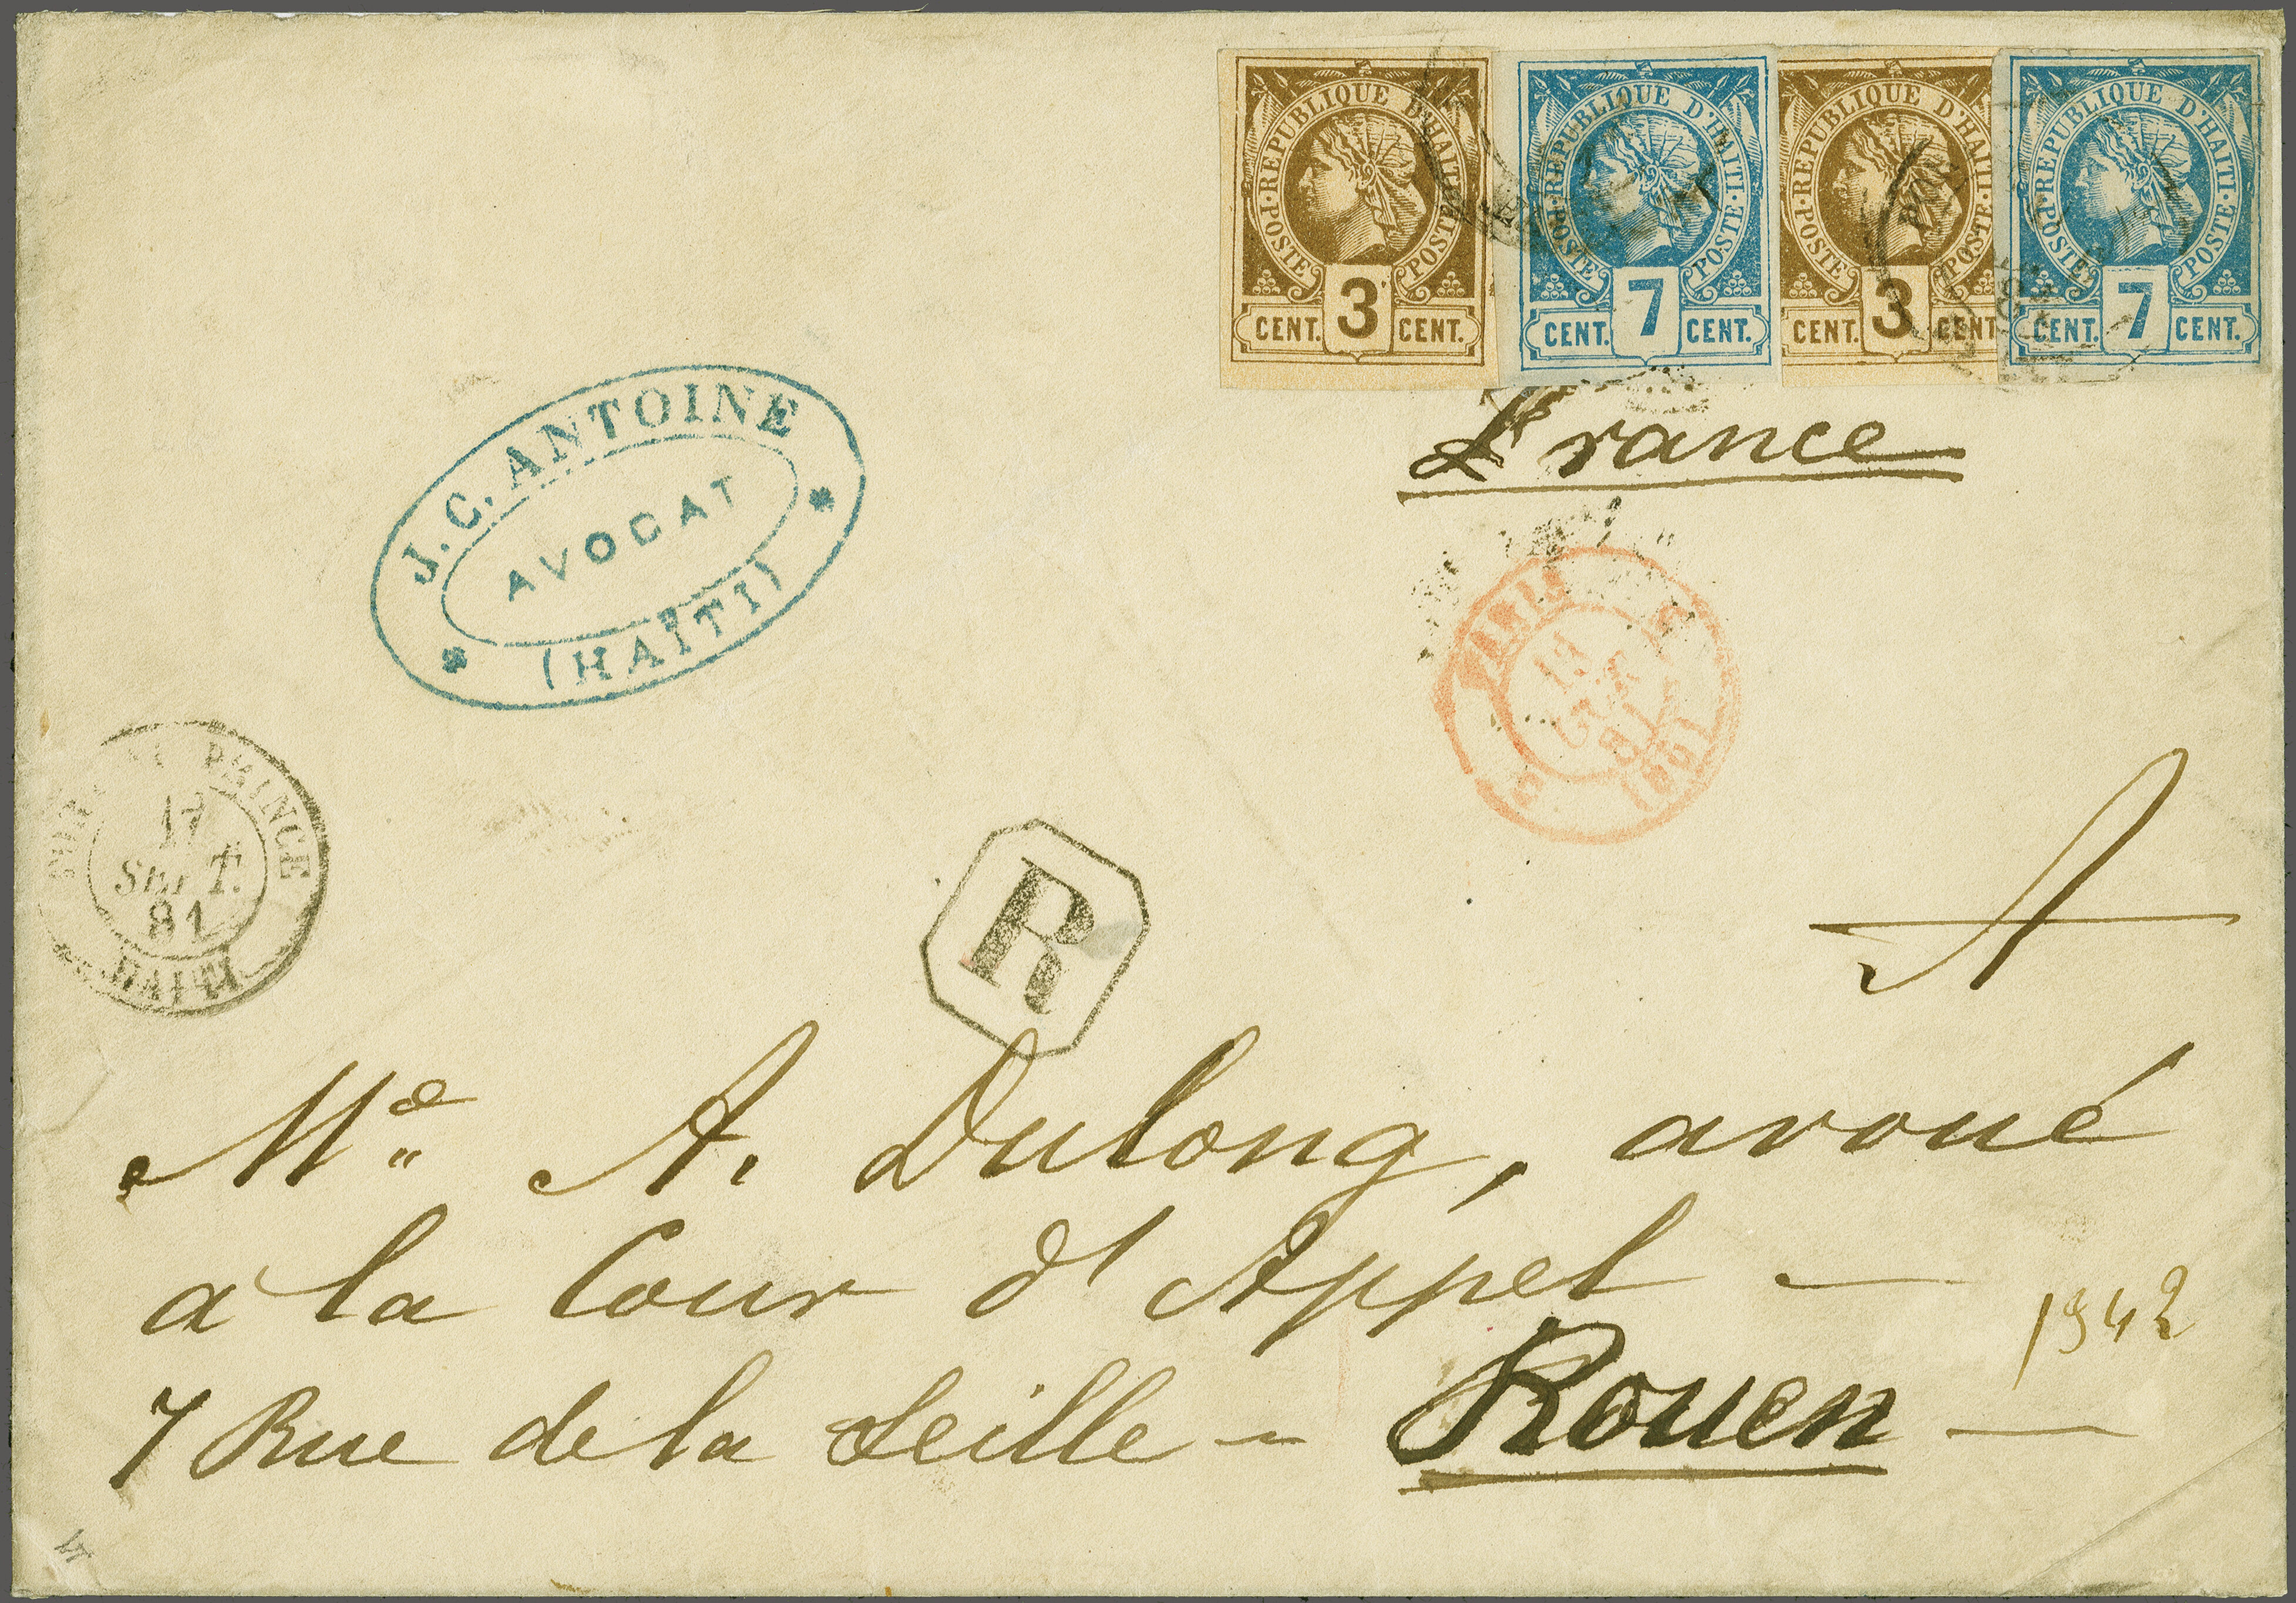 REPUBLIQUE D'HAITI
POSTE POSTE
CENT. 3 CENT.
REPUBLIQUE D'HAITI
POSTE POSTE
CENT. 7 CENT.
REPUBLIQUE D'HAITI
POSTE POSTE
CENT. 3 CENT.
REPUBLIQUE D'HAITI
POSTE POSTE
CENT. 7 CENT.
France
J. C. ANTOINE
AVOCAT
(HAITI)
PARIS
PRINCE
17
SEPT.
81
HAITI
R
A
Me A. Dulong, avoué
a la Cour d'Appel —
1942
7 Rue de la Seille — Rouen —